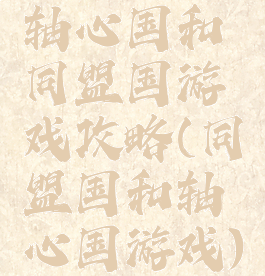 轴心国和
同盟国游
戏攻略(同
盟国和轴
心国游戏)